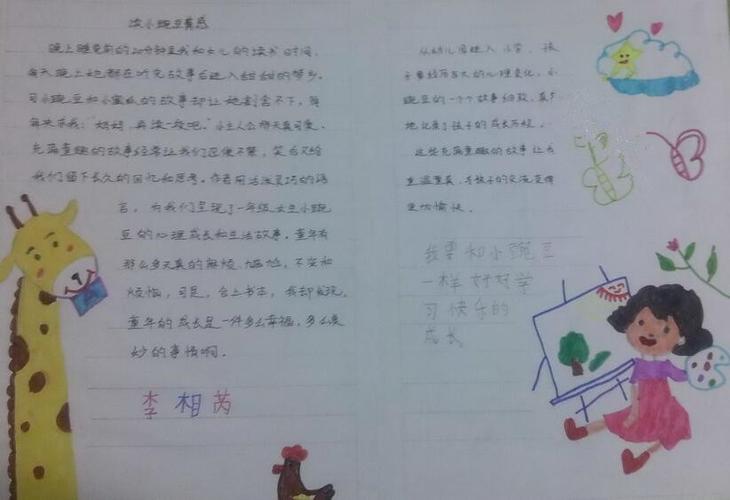 读小豌豆有感
晚上睡觉前的20分钟是我和女儿的读书时间，
每天晚上她都在听完故事后进入甜甜的梦乡。
可小豌豆和小蜜瓜的故事却让她割舍不下，每
每央求我：“妈妈，再读一段吧。”小主人公称天真可爱、
充满童趣的故事经常让我们忍俊不禁，笑后又给
我们留下长久的回忆和思考。作者用活泼灵巧的语
言，为我们呈现了一年级女生小豌
豆的心理成长和生活故事。童年有
那么多天真的麻烦、尴尬、不安和
烦恼，可是，合上书本，我却发现，
童年的成长是一件多么幸福，多么美
妙的事情啊。
李相芮
从幼儿园进入小学，孩
子要经历巨大的心理变化，小
豌豆的一个个故事细致、真
地记录了孩子的成长历程。
这些充满童趣的故事让
重温童真，与孩子的交流变得
更加愉快。
我要和小豌豆
一样好好学
习快乐的
成长